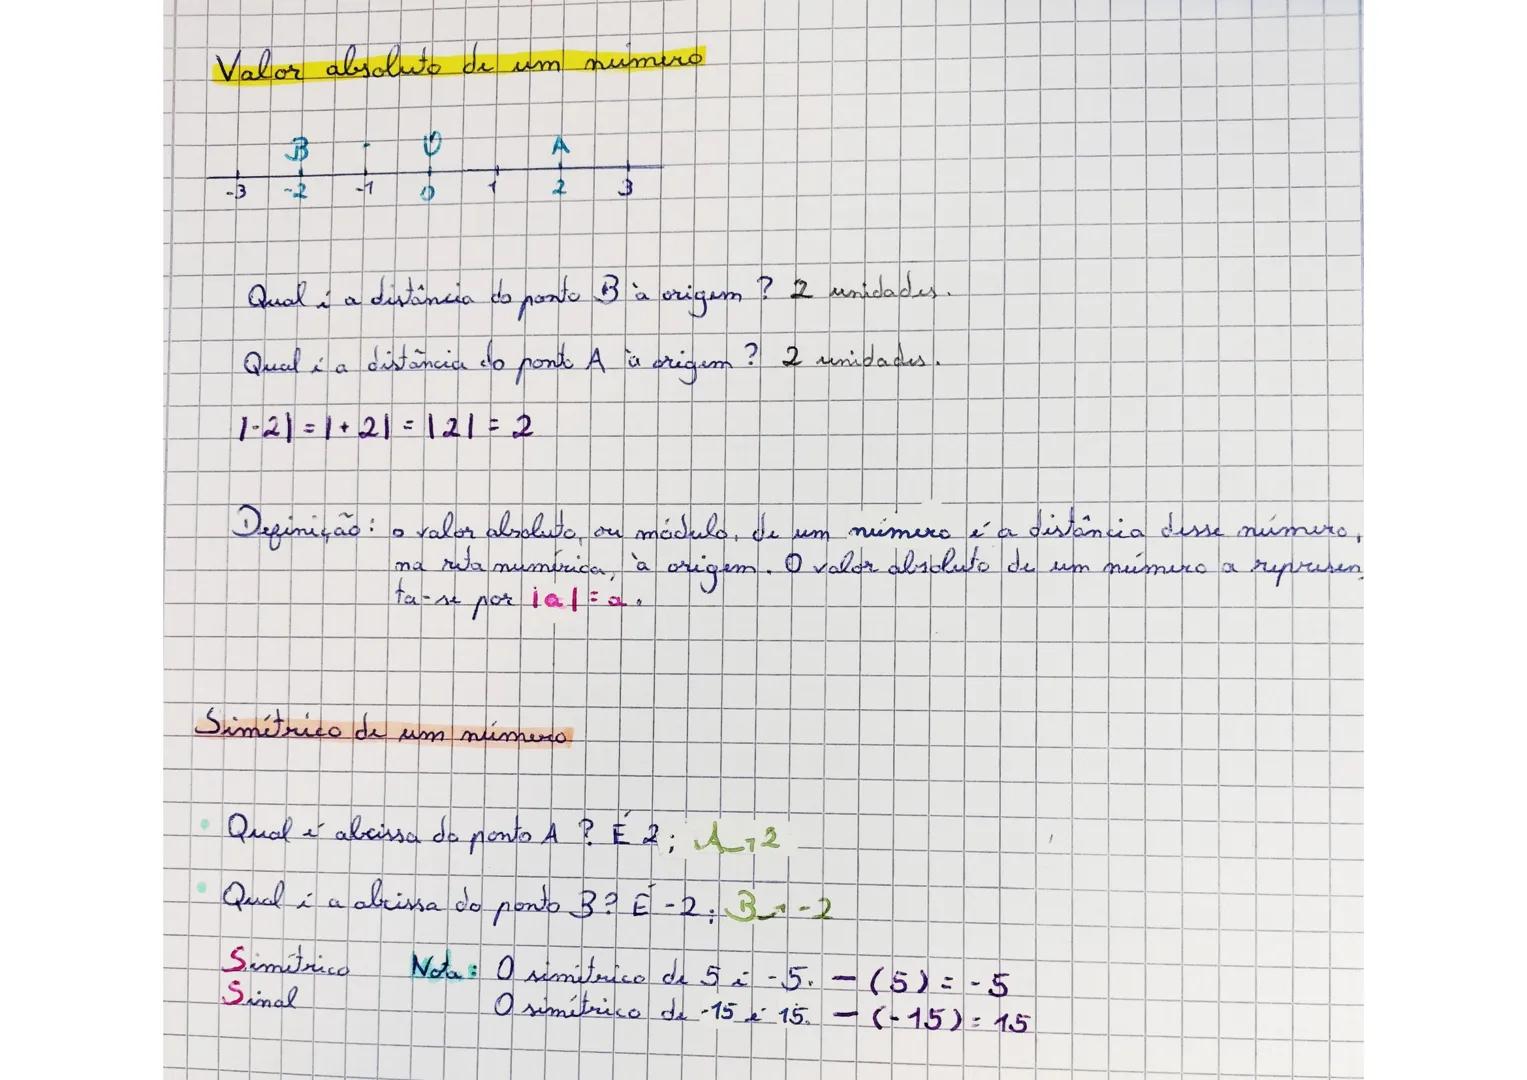 Valor absoluto de um número
B O A
-3 -2 -1 0 1 2 3
Qual é a distância do ponto B à origem? 2 unidades.
Qual é a distância do ponto A à origem? 2 unidades.
|-2| = |+2| = |2| = 2
Definição: o valor absoluto, ou módulo, de um número é a distância desse número,
na reta numérica, à origem. O valor absoluto de um número a represen
ta-se por |a| = a.
Simétrico de um número
• Qual é abcissa do ponto A? É 2; A→2
• Qual é a abcissa do ponto B? É -2; B→-2
Simétrico Nota: O simétrico de 5 é -5. -(5) = -5
Sinal O simétrico de -15 é 15. -(-15) = 15